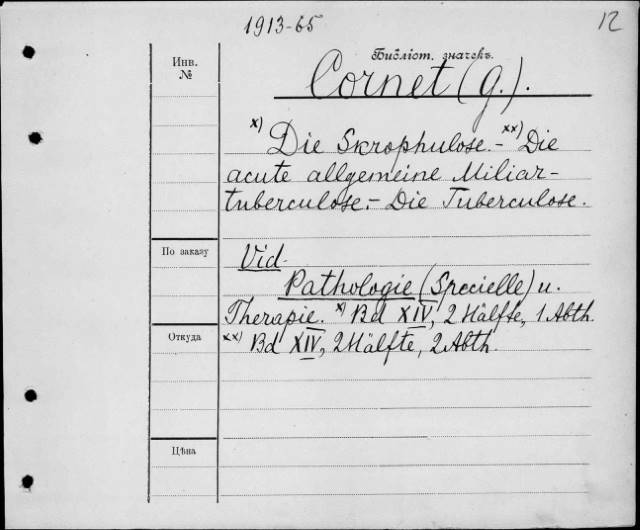 1913-65
12
Инв.
№
Библіот. значекъ.
Cornet (G.).
x) Die Skrophulose. - xx) Die
acute allgemeine Miliar-
tuberculose. - Die Tuberculose.
По заказу
Vid.
Pathologie (Specielle) u.
Therapie. x) Bd XIV, 2 Hälfte, 1 Abth.
Откуда
xx) Bd XIV, 2 Hälfte, 2 Abth.
Цѣна